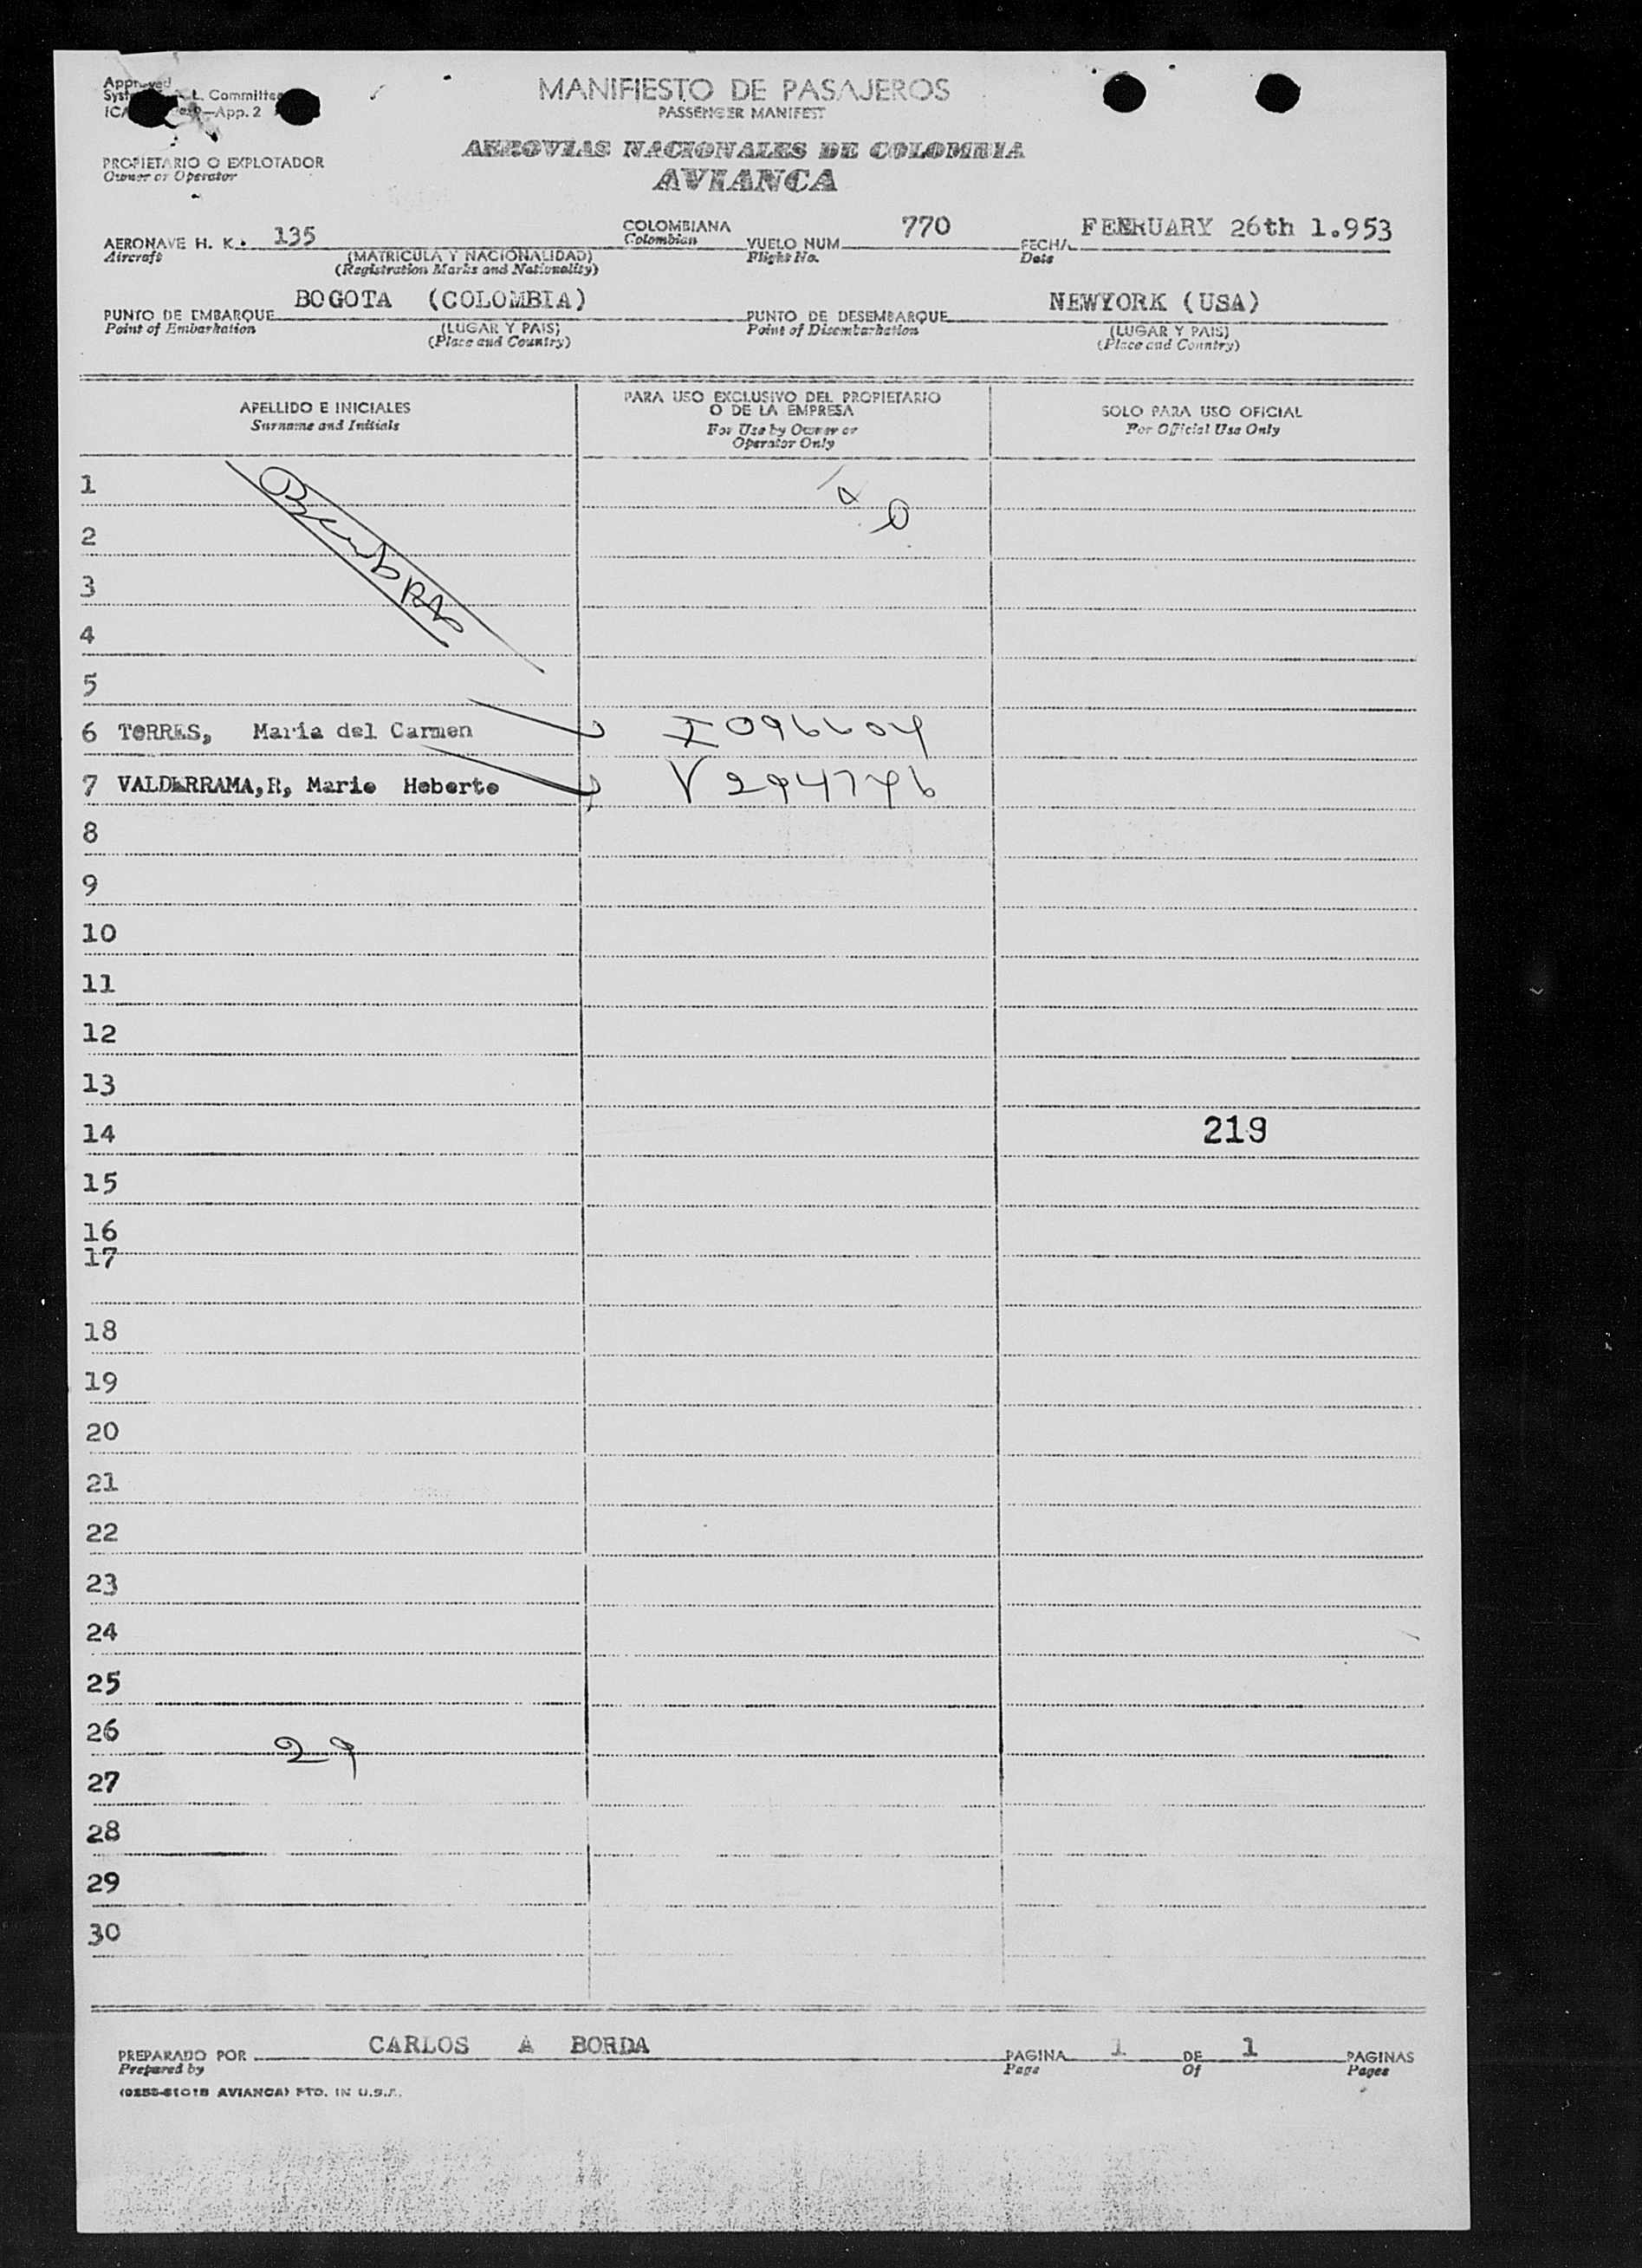 Approved
L. Committee
App. 2
MANIFIESTO DE PASAJEROS
PASSENGER MANIFEST
AEROVIAS NACIONALES DE COLOMBIA
AVIANCA
PROPIETARIO O EXPLOTADOR
Owner or Operator
AERONAVE H. K. 135 COLOMBIANA VUELO NUM 770 FECHA FEBRUARY 26th 1.953
Aircraft (MATRICULA Y NACIONALIDAD) Colombian Flight No. Date
(Registration Marks and Nationality)
PUNTO DE EMBARQUE BOGOTA (COLOMBIA) PUNTO DE DESEMBARQUE NEWYORK (USA)
Point of Embarkation (LUGAR Y PAIS) Point of Disembarkation (LUGAR Y PAIS)
(Place and Country) (Place and Country)
APELLIDO E INICIALES PARA USO EXCLUSIVO DEL PROPIETARIO O DE LA EMPRESA SOLO PARA USO OFICIAL
Surname and Initials For Use by Owner or Operator Only For Official Use Only
1
2
3
4
5
6 TORRES, Maria del Carmen I 096604
7 VALDERRAMA, R, Mario Heberto V 294746
8
9
10
11
12
13
14 219
15
16
17
18
19
20
21
22
23
24
25
26
29
27
28
29
30
PREPARADO POR CARLOS A BORDA PAGINA 1 DE 1 PAGINAS
Prepared by Page Of Pages
AVIANCA) PTD. IN U.S.A.